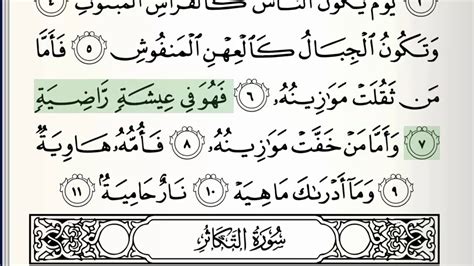 ٣ يَوْمَ يَكُونُ النَّاسُ كَالْفَرَاشِ الْمَبْثُوثِ ٤
وَتَكُونُ الْجِبَالُ كَالْعِهْنِ الْمَنْفُوشِ ٥ فَأَمَّا
مَن ثَقُلَتْ مَوَازِينُهُۥ ٦ فَهُوَ فِي عِيشَةٍ رَّاضِيَةٍ
٧ وَأَمَّا مَنْ خَفَّتْ مَوَازِينُهُۥ ٨ فَأُمُّهُۥ هَاوِيَةٌ
٩ وَمَآ أَدْرَىٰكَ مَا هِيَهْ ١٠ نَارٌ حَامِيَةٌۢ ١١
سُورَةُ التَّكَاثُرِ